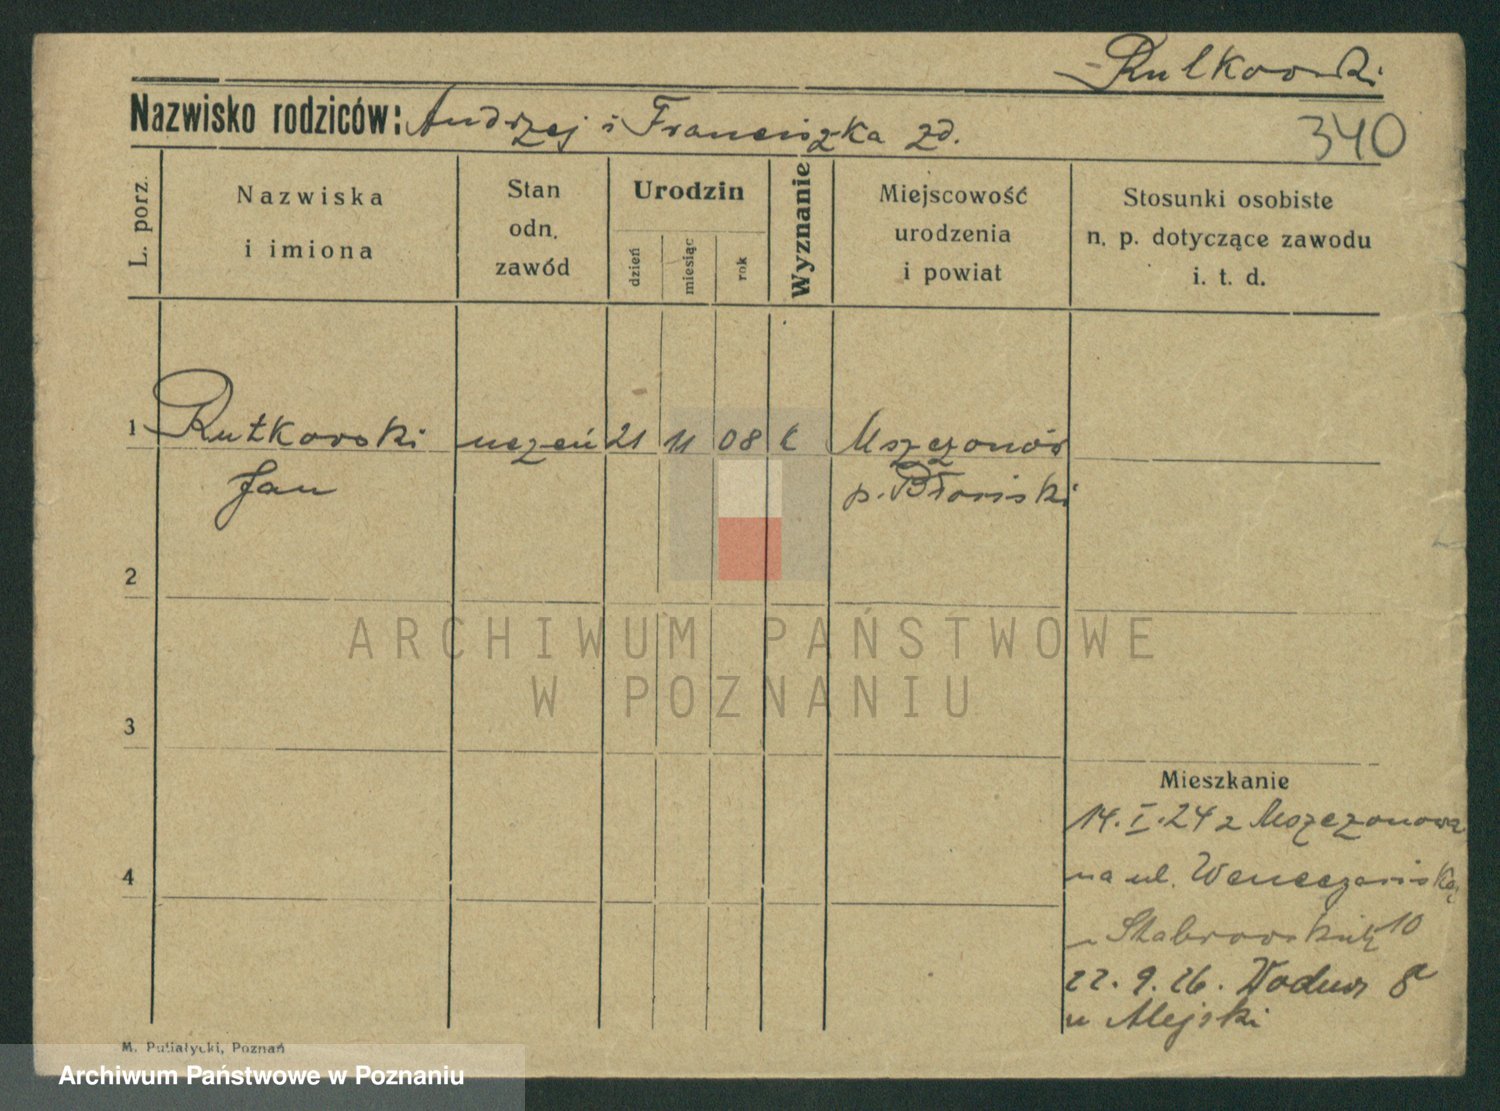 Rutkowski
Nazwisko rodziców: Andrzej i Franciszka zd.
340
L. porz.
Nazwiska
i imiona
Stan
odn.
zawód
Urodzin
dzień
miesiąc
rok
Wyznanie
Miejscowość
urodzenia
i powiat
Stosunki osobiste
n. p. dotyczące zawodu
i. t. d.
1 Rutkowski uczeń 21 11 08 k Mszczonów
Jan p. Błoński
2
ARCHIWUM PAŃSTWOWE
W POZNANIU
3
Mieszkanie
14.I.24 z Mszczonowa
4
na ul. Wenecjańską
10
22.9.26. Wodna 8a
u Alejski
M. Putiatycki, Poznań
Archiwum Państwowe w Poznaniu